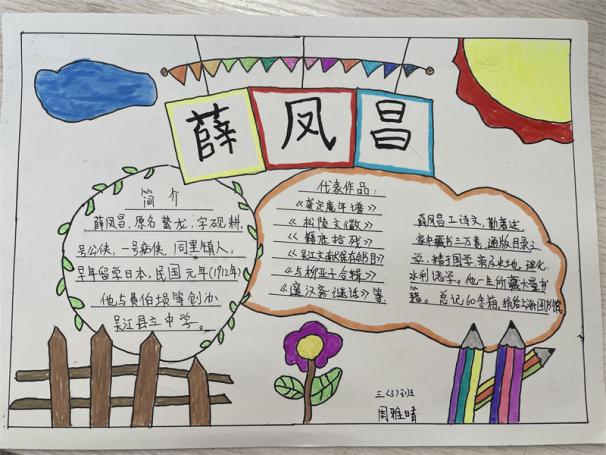 薛凤昌
简介
薛凤昌,原名蛰龙,字砚耕,
号公侠,一号病侠,同里镇人,
早年留学日本,民国元年(1912年)
他与费伯埙等创办
吴江县立中学。
代表作品:
《龚定庵年谱》
《松陵文徵》
《籍底拾残》
《吴江文献保存会书目》
《与柳亚子合辑》
《邃汉斋谜话》等
薛凤昌工诗文,勤著述,
家中藏书三万卷,通版目录之
学,精于国学
水利诸学。他一生所藏大量书
籍。总记60余箱,
三(3)班
周雅晴